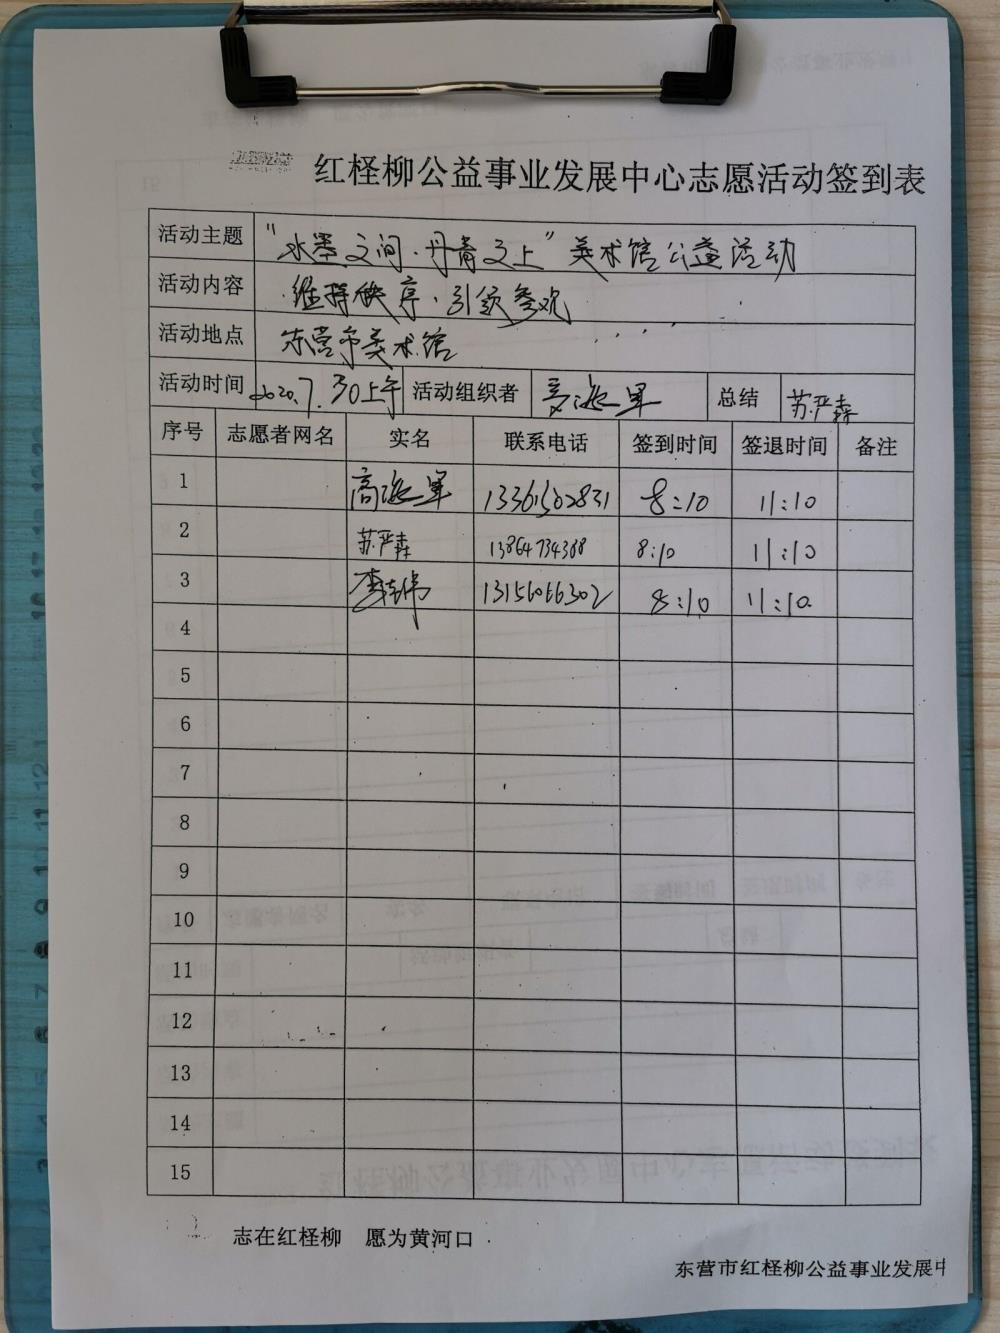 红柽柳公益事业发展中心志愿活动签到表
活动主题 "水墨之间·丹青之上"美术馆公益活动
活动内容 维持秩序·引领参观
活动地点 东营市美术馆
活动时间 2020.7.30上午 活动组织者 高 军 总结 苏严森
序号 志愿者网名 实名 联系电话 签到时间 签退时间 备注
1 高 军 13361502831 8:10 11:10
2 苏严森 13864734388 8:10 11:10
3 李 伟 13156066302 8:10 11:10
4
5
6
7
8
9
10
11
12
13
14
15
志在红柽柳 愿为黄河口
东营市红柽柳公益事业发展中